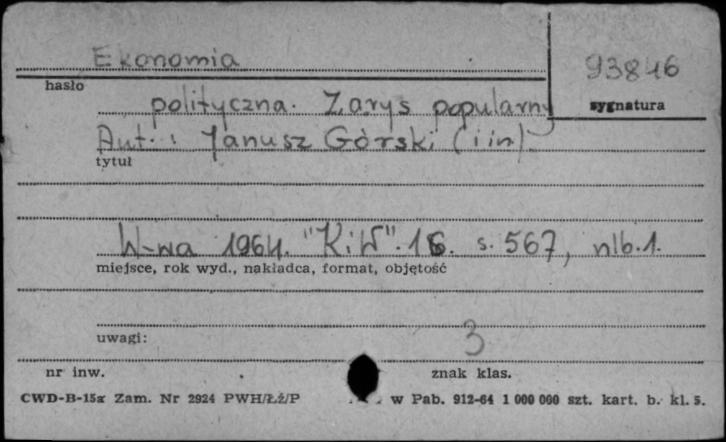 Ekonomia
93846
hasło
polityczna. Zarys popularny
sygnatura
Aut.: Janusz Górski (i in)
tytuł
W-wa 1964. "KiW". 16. s. 567, nlb.1.
miejsce, rok wyd., nakładca, format, objętość
uwagi:
3
nr inw.
znak klas.
CWD-B-15a Zam. Nr 2924 PWH/ŁŻ/P w Pab. 912-64 1 000 000 szt. kart. b. kl. 5.